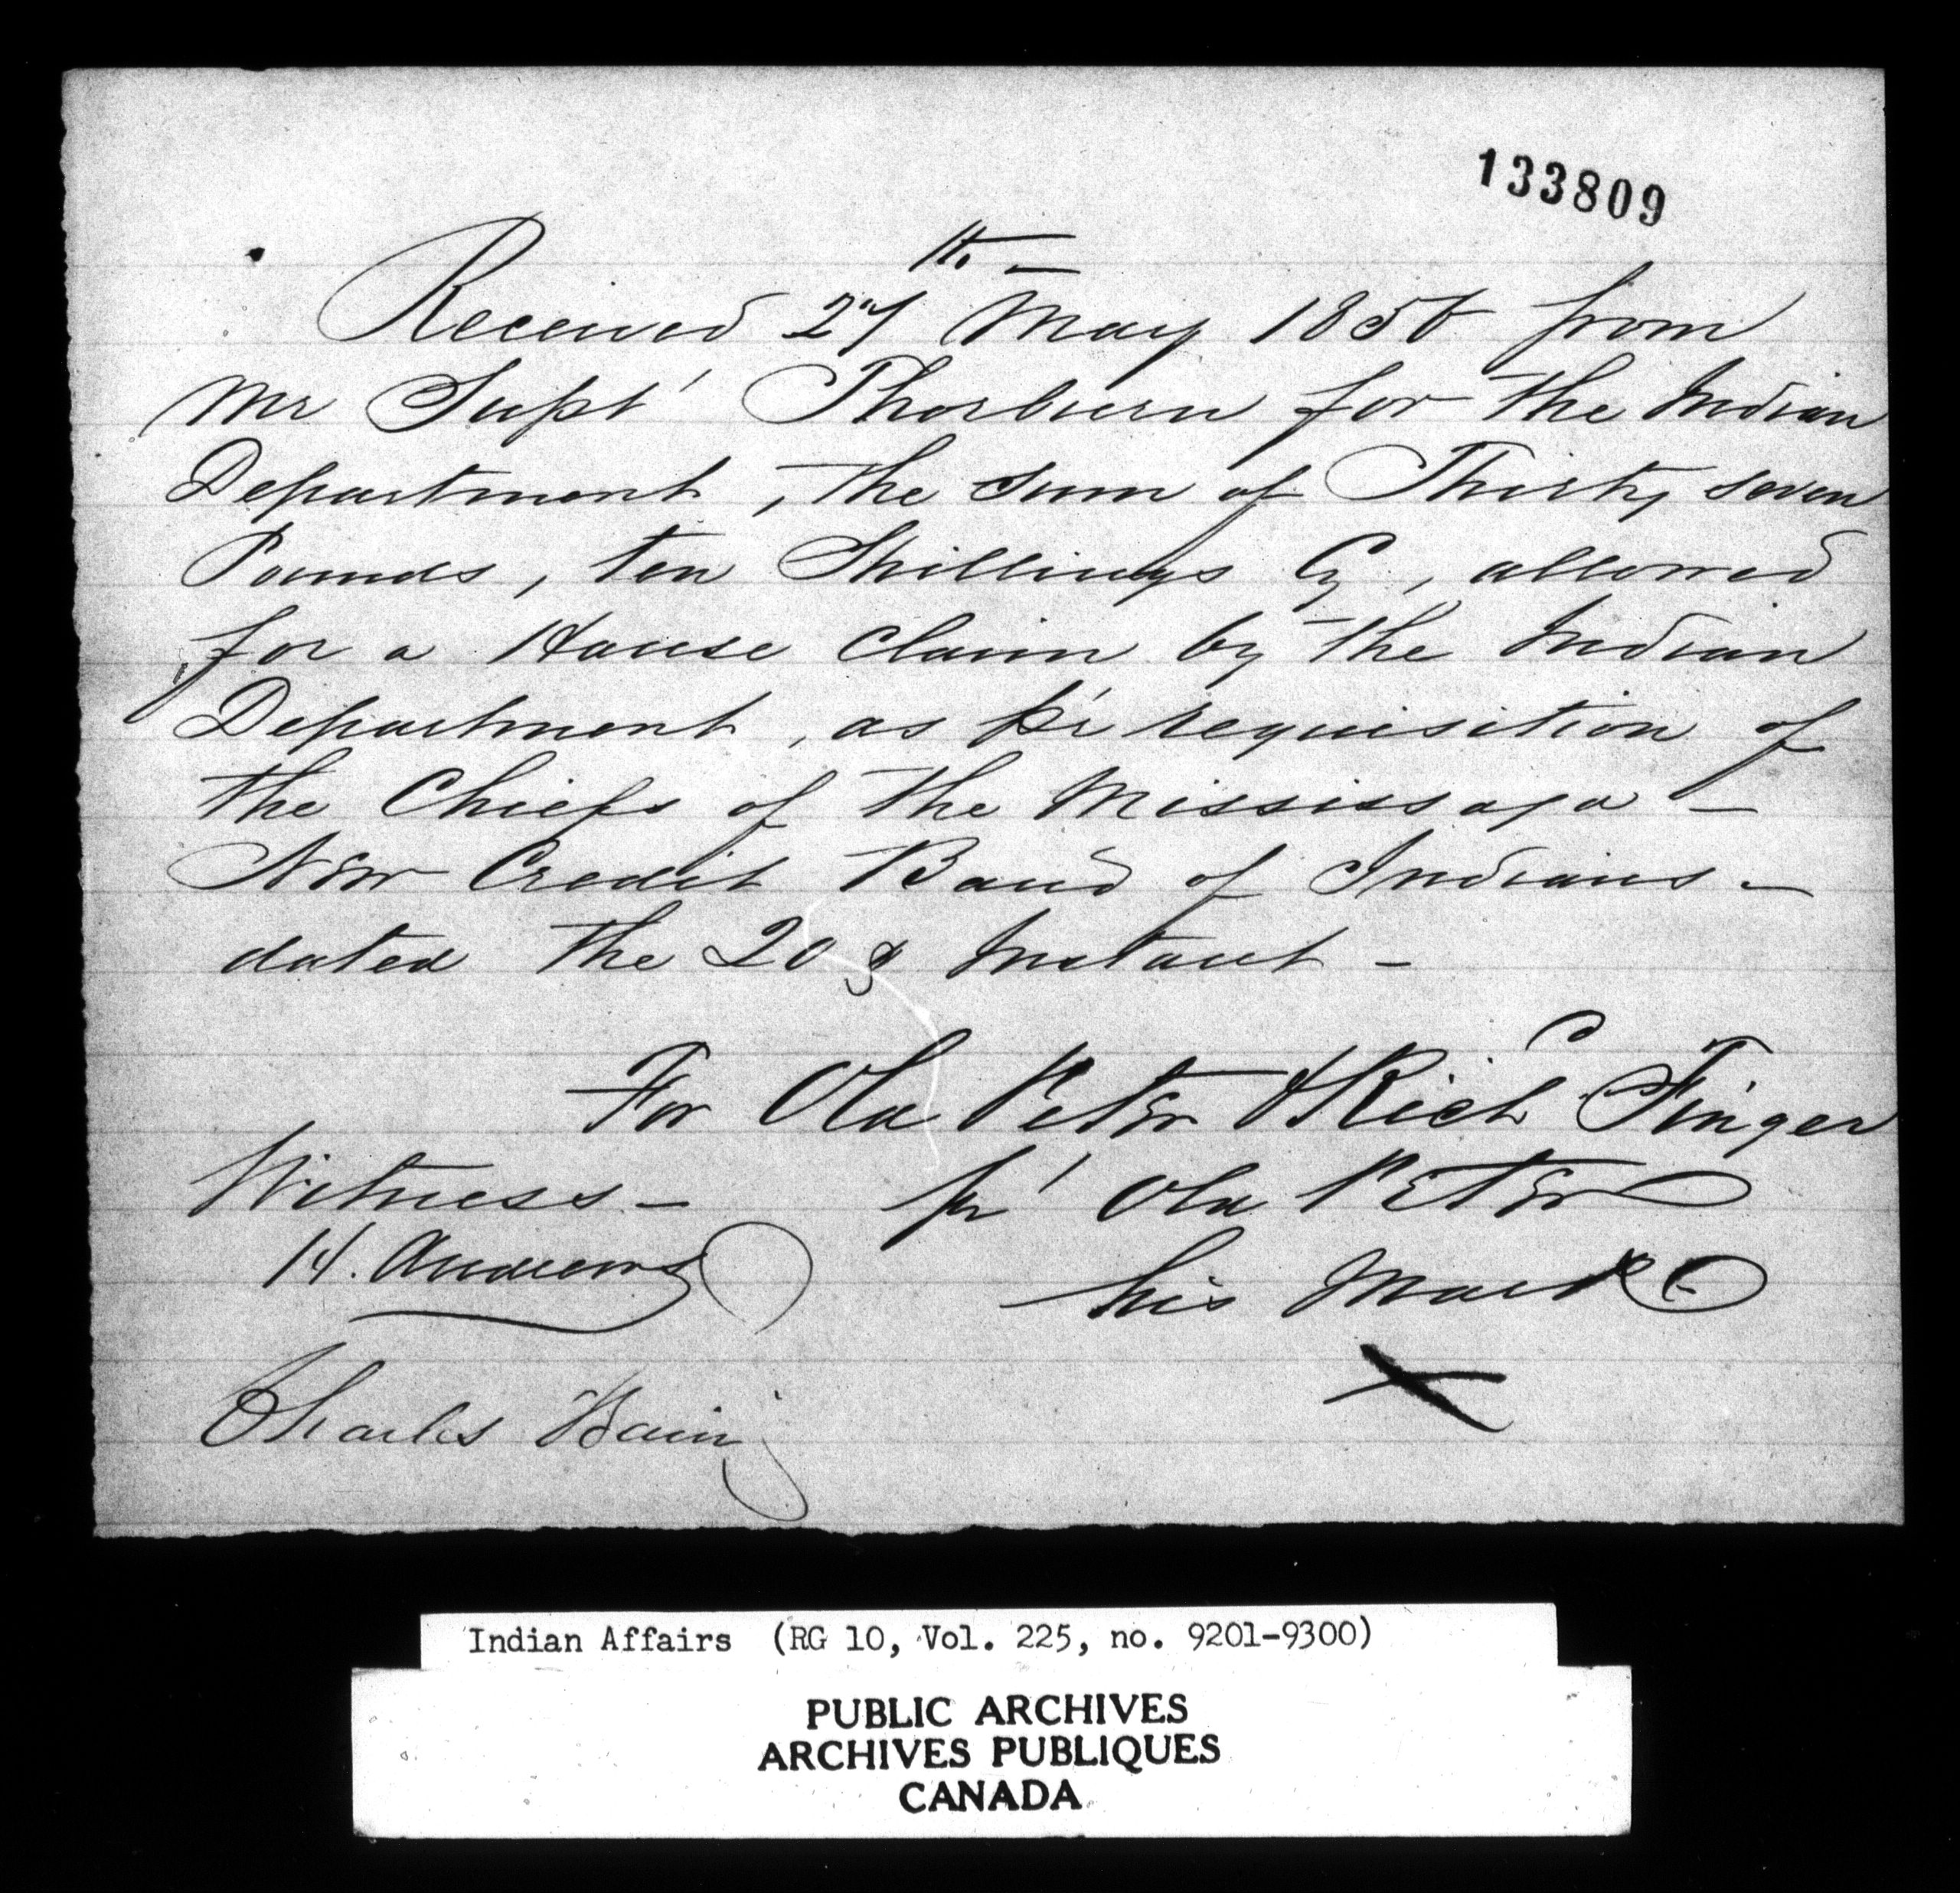 133809
1t. —
Received 27 May 1856 from
Mr Supt' Thorburn for the Indian
Department, the Sum of Thirty seven
Pounds, ten Shillings Cy, allowed
for a House Claim by the Indian
Department, as pr requisition of
the Chiefs of the Mississaga —
New Credit Band of Indians —
dated the 20th Instant —
For Old Peter & Rich Finger
Witness — pr Old Peter
H. Andrews his Mark
X
Charles Bain
Indian Affairs (RG 10, Vol. 225, no. 9201-9300)
PUBLIC ARCHIVES
ARCHIVES PUBLIQUES
CANADA